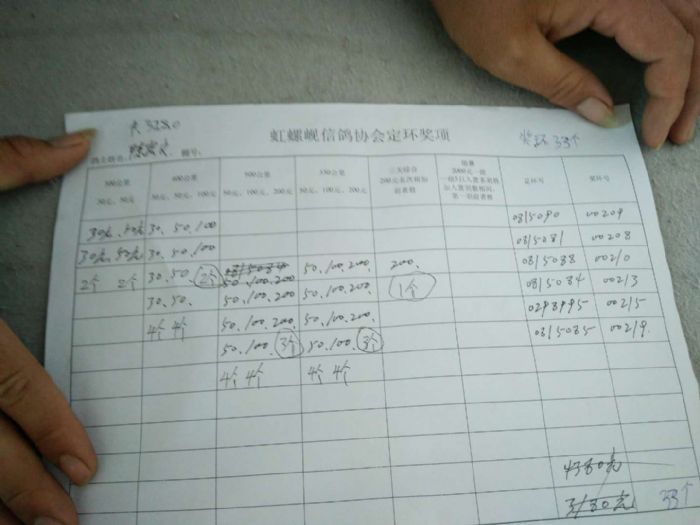 欠3280
虹螺岘信鸽协会定环奖项
奖环33个
鸽主姓名: 棚号:
300公里 400公里 500公里 550公里 三关综合 组赛 足环号 奖环号
30元、50元 30元、50元、100元 50元、100元、200元 50元、100元、200元 200元名次相加 2000元一组
前者胜
第一组前者胜
30元、50元 30、50、100 0815090 00209
30元、50元 30、50、100 0815081 00208
2个 2个 30、50 2个 50、100、200 50、100、200 200、 0815088 00210
30、50、 50、100、200 50、100、200 1个 0815084 00213
4个 4个 50、100、200 50、100、200、 0298995 00215
50、100、 3个 50、100、 3个 0815085 00219、
4个 4个 4个 4个
4380元
3180元 33个